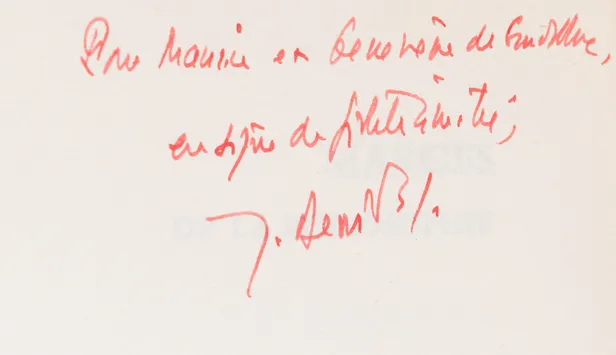 Pour Maurice et Geneviève de Gandillac,
en signe de fidèle amitié,
J. Derrida